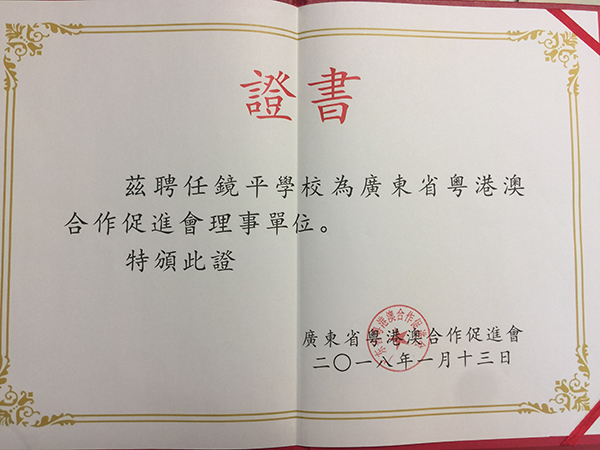 證書
茲聘任鏡平學校為廣東省粵港澳
合作促進會理事單位。
特頒此證
廣東省粵港澳合作促進會
二〇一八年一月十三日